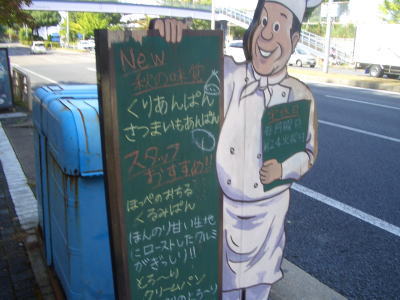 New
秋の味覚
くりあんぱん
さつまいもあんぱん
スタッフ
おすすめ!!
ほっぺのおちる
くるみぱん
ほんのり甘い生地
にローストしたクルミ
がぎっしり!!
とろ〜り
クリームパン
定休日
毎月曜日